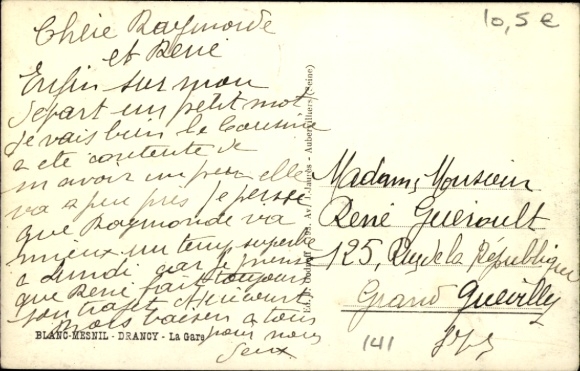 Chère Raymonde
et René
Enfin sur mon
départ un petit mot
je vais bien la Cousine
a ete contente de
m avoir un peu elle
va a peu près je pense
que Raymonde va
mieux un temps superbe
a Lundi car je pense
que René fait toujours
son trajet
Gros baisers a tous
pour nous
deux
BLANC-MESNIL - DRANCY - La Gare
Av. J. Jaurès - Aubervilliers (Seine)
10,5 €
Madame, Monsieur
René Guéroult
125, Rue de la République
Grand Quevilly
141